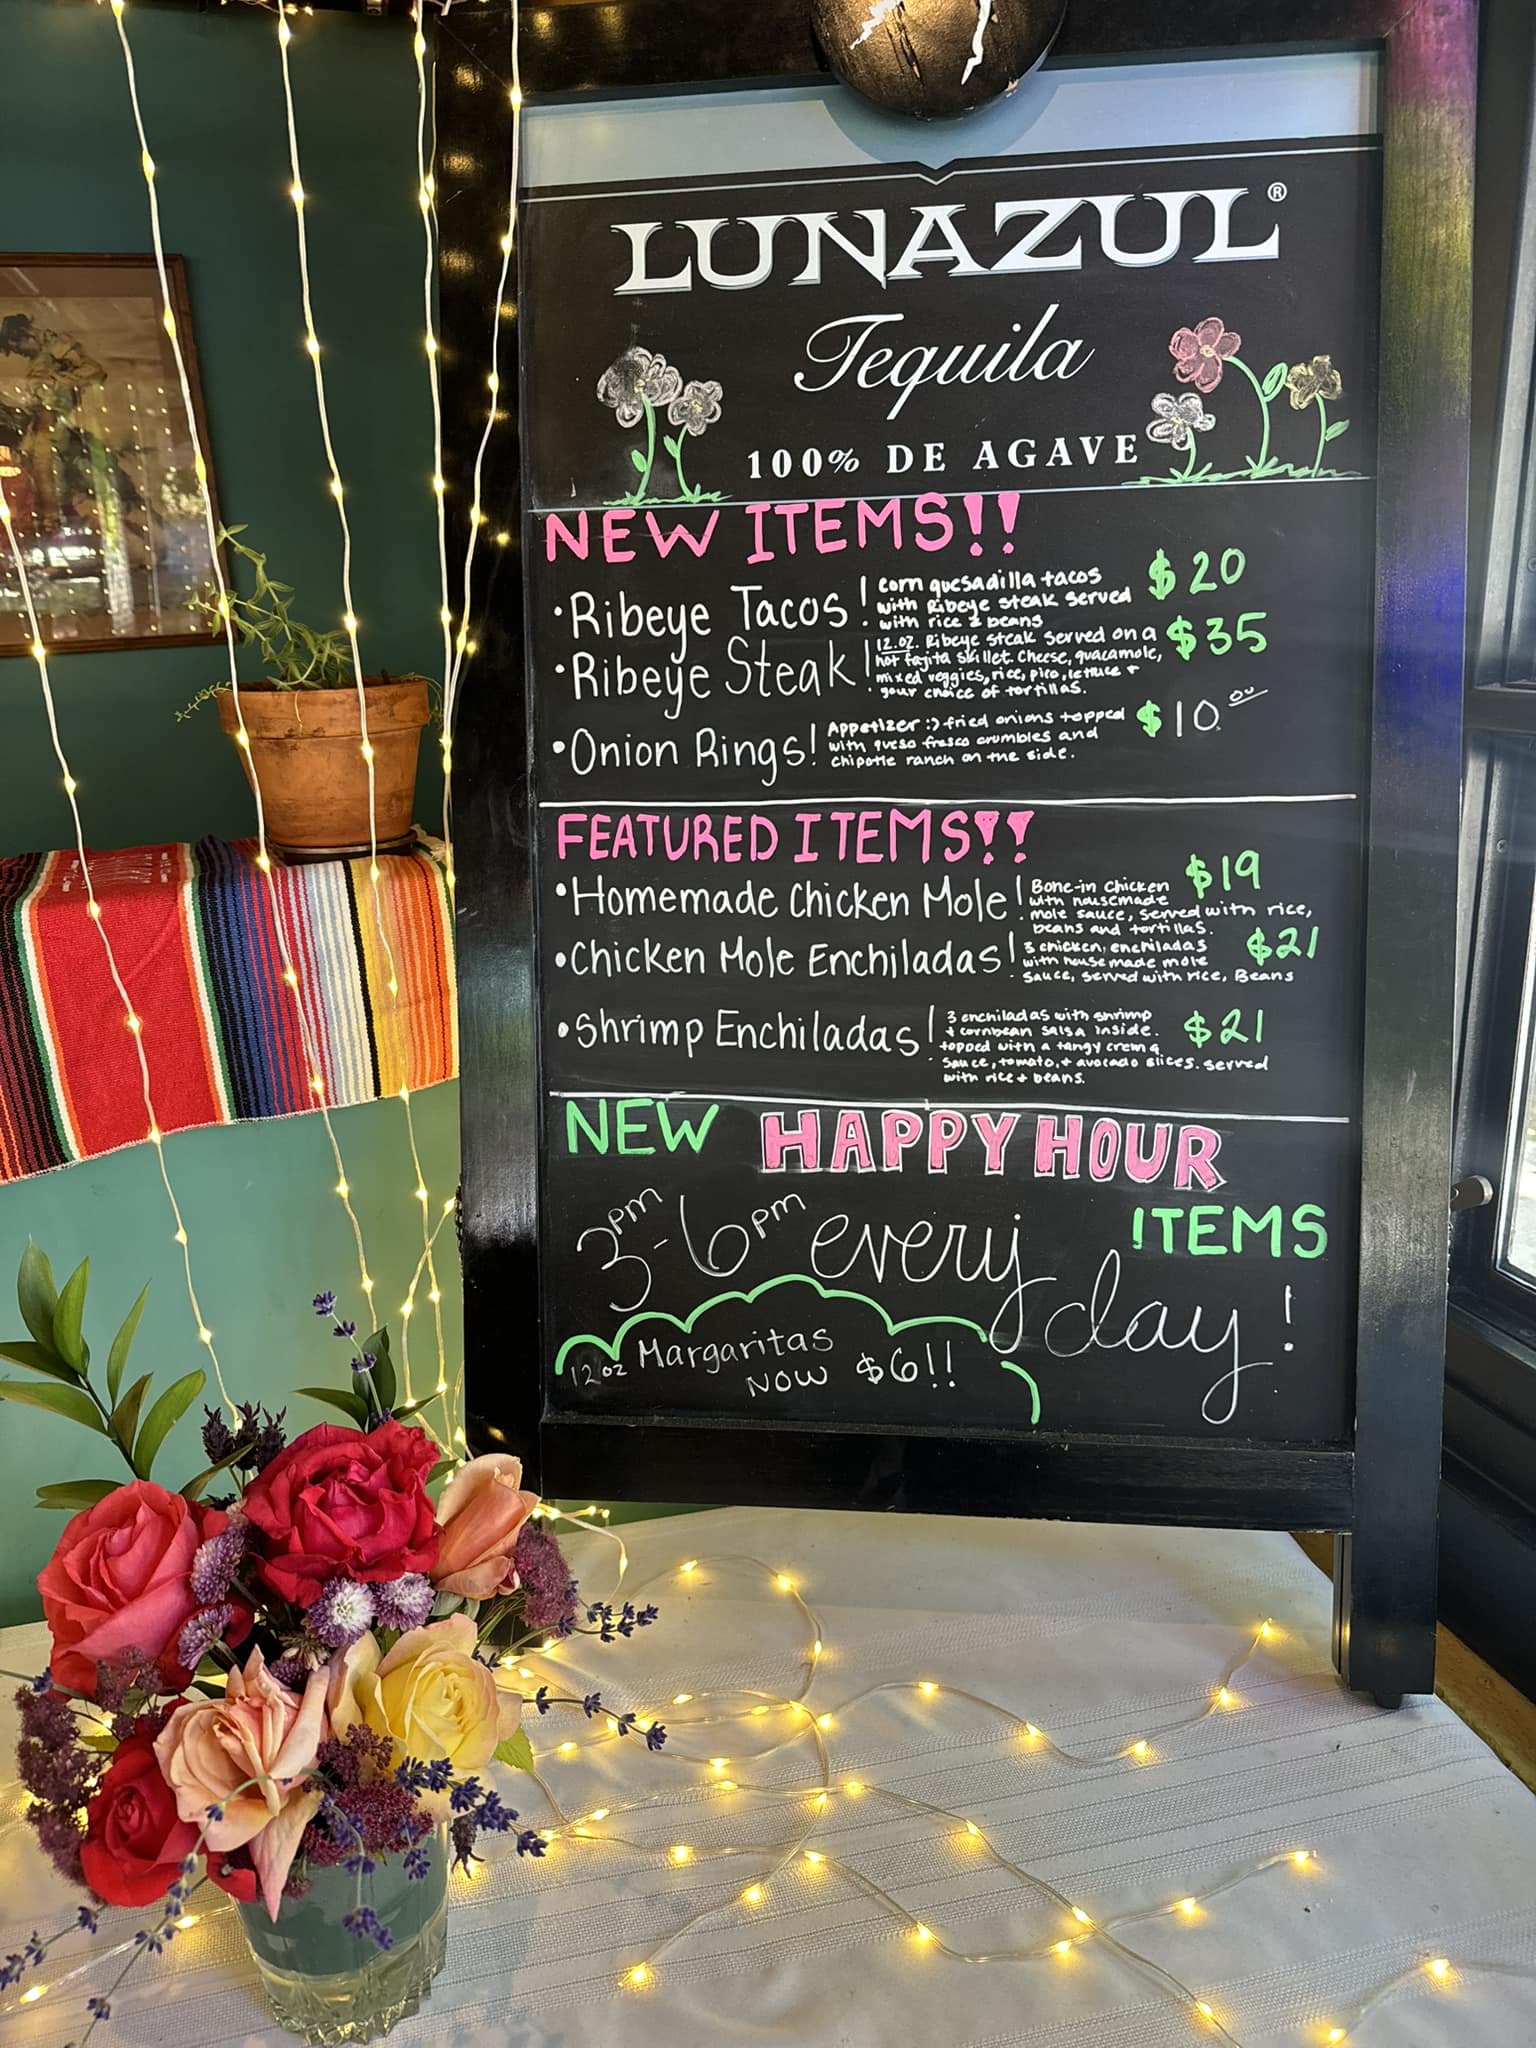 LUNAZUL®
Tequila
100% DE AGAVE
NEW ITEMS!!
•Ribeye Tacos! corn quesadilla tacos $20
with Ribeye steak served
with rice & beans
•Ribeye Steak! 12.oz. Ribeye steak served on a $35
hot fajita skillet. Cheese, guacamole,
mixed veggies, rice, pico, lettuce +
your choice of tortillas.
•Onion Rings! Appetizer :) fried onions topped $10.00
with queso fresco crumbles and
chipotle ranch on the side.
FEATURED ITEMS!!
•Homemade Chicken Mole! Bone-in chicken $19
with housemade
mole sauce, served with rice,
beans and tortillas.
•Chicken Mole Enchiladas! 3 chicken enchiladas $21
with housemade mole
sauce, served with rice, Beans
•Shrimp Enchiladas! 3 enchiladas with shrimp $21
+ cornbean salsa inside.
topped with a tangy crema
sauce, tomato, + avocado slices. served
with rice + beans.
NEW HAPPY HOUR
ITEMS
3pm-6pm every day!
12oz Margaritas
NOW $6!!